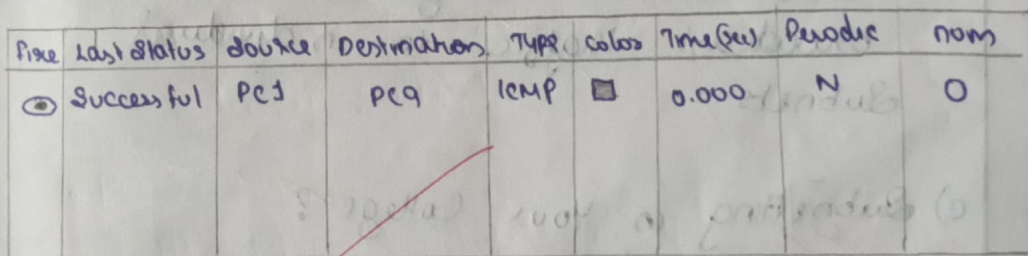 Fire Last Status Source Destination Type Color Time(sec) Perodic num
Successful PC1 PC9 ICMP 0.000 N 0